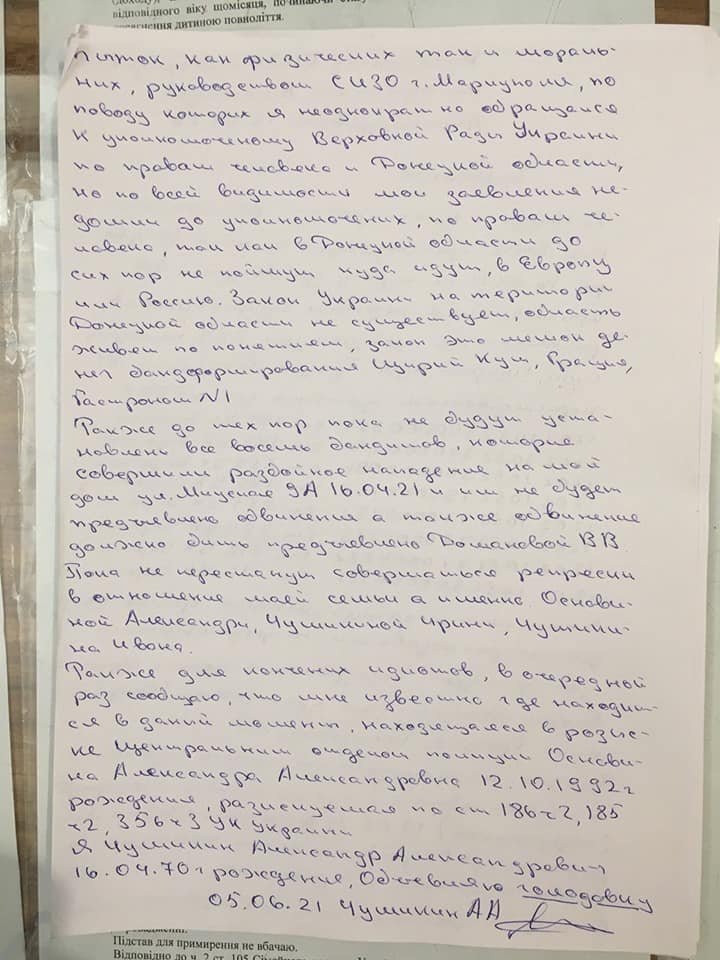 відповідного віку щомісяця, починаючи
досягнення дитиною повноліття.
пыток, как физических так и мораль-
них, руководством СИЗО г. Мариуполя, по
поводу которих я неоднократно обращался
К уполномоченому Верховной Ради Украини
по правам человека и Донецкой области,
но по всей видимости мои заявления не-
дошли до уполномочених, по правам че-
ловека, так как в Донецкой области до
сих пор не поймут куда идут, в Европу
или Россию. Закон Украини на територии
Донецкой области не существует, область
живет по понятиям, закон это мешок де-
нег бандформирования Щирий Кут, Грация,
Гастроном N1
Также до тех пор пока не будут уста-
новлень все восемь бандитов, которие
совершили разбойное нападение на мой
дом ул. 9А 16.04.21 и им не будет
предъявлено обвинения а также обвинение
должно бить предъявлено Домановой ВВ.
Пока не перестанут совершаться репресии
в отношение маей семьи а именно. Основи-
ной Александри, Чушкиной Ирини, Чушки-
на Ивона.
Также для конченых идиотов, в очередной
раз сообщаю, что мне известно где находит-
ся в даний момент, находящаяся в розис-
ке Центральним отделом полиции Основи-
на Александра Александровна 12.10.1992г
рождения, разискуемая по ст 186ч2, 185
ч2, 356ч3 УК Украини
Я Чушкин Александр Александрович
16.04.70г рождение, Объевляю голодовку
05.06.21 Чушкин АА
Підстав для примирення не вбачаю.
Відповідно до ч. 2 ст. 105